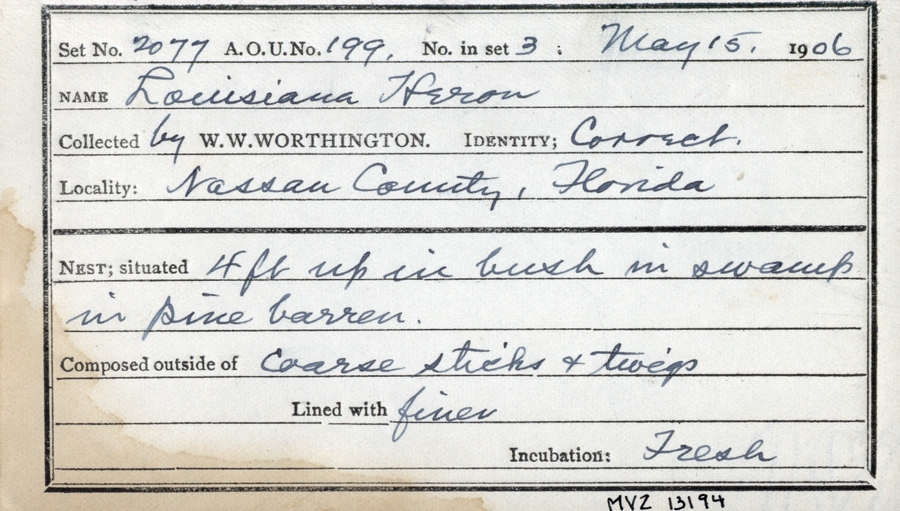 Set No. 2077 A.O.U.No. 199. No. in set 3 : May 15. 1906
NAME Louisiana Heron
Collected by W.W.WORTHINGTON. IDENTITY; Correct.
Locality: Nassau County, Florida
NEST; situated 4 ft up in bush in swamp
in pine barren.
Composed outside of coarse sticks & twigs
Lined with finer
Incubation: Fresh
MVZ 13194